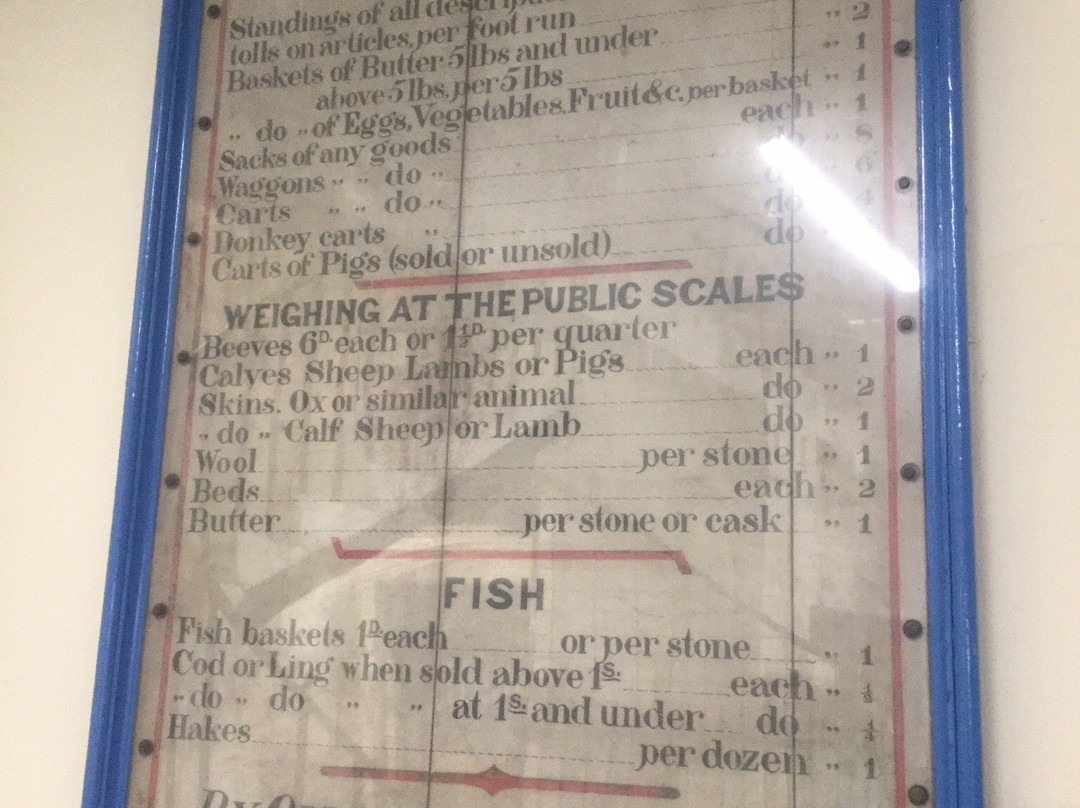 Standings of all
tolls on articles, per foot run „ 2
Baskets of Butter 5 lbs and under „ 1
above 5 lbs, per 5 lbs „ 1
„ do „ of Eggs, Vegetables, Fruit &c. per basket „ 1
Sacks of any goods each „ 1
Waggons „ „ do „ do „ 8
Carts „ „ do „ do „ 6
Donkey carts „ do „ 4
Carts of Pigs (sold or unsold) do
WEIGHING AT THE PUBLIC SCALES
Beeves 6D each or 1½D per quarter
Calves Sheep Lambs or Pigs each „ 1
Skins. Ox or similar animal do „ 2
„ do „ Calf Sheep or Lamb do „ 1
Wool per stone „ 1
Beds each „ 2
Butter per stone or cask „ 1
FISH
Fish baskets 1D each or per stone „ 1
Cod or Ling when sold above 1S. each „ ½
„ do „ do „ „ at 1S. and under do „ ¼
Hakes per dozen „ 1